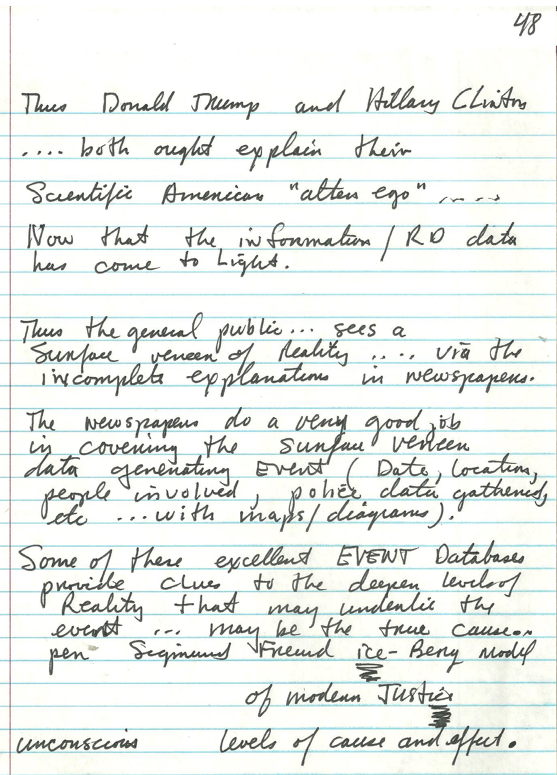 48
Thus Donald Trump and Hillary Clinton
.... both ought explain their
Scientific American "alter ego" .....
Now that the information / RD data
has come to Light.
Thus the general public... sees a
Surface veneer of Reality .... via the
incomplete explanations in newspapers.
The newspapers do a very good job
in covering the Surface veneer
data generating EVENT (Date, location,
people involved, police data gathered,
etc ... with maps/diagrams).
Some of these excellent EVENT Databases
provide clues to the deeper levels of
Reality that may underlie the
event ... may be the true cause..
per Sigmund Freud ice-Berg Model
of modern Justice
unconscious levels of cause and effect.